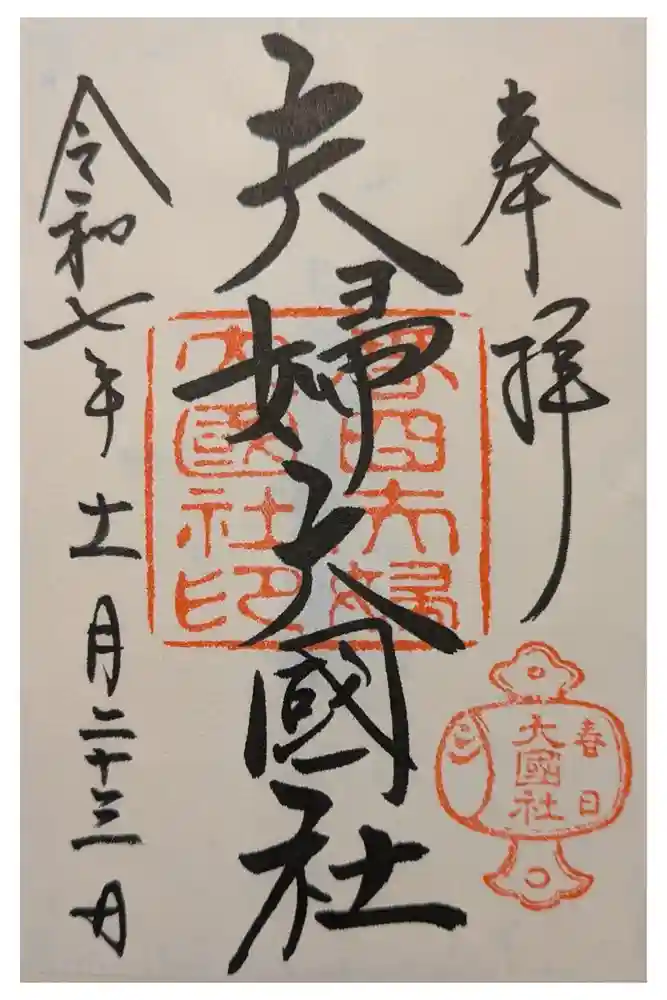 奉拝
夫婦大國社
春日夫婦
大國社印
春日
大國社
令和七年十一月二十三日